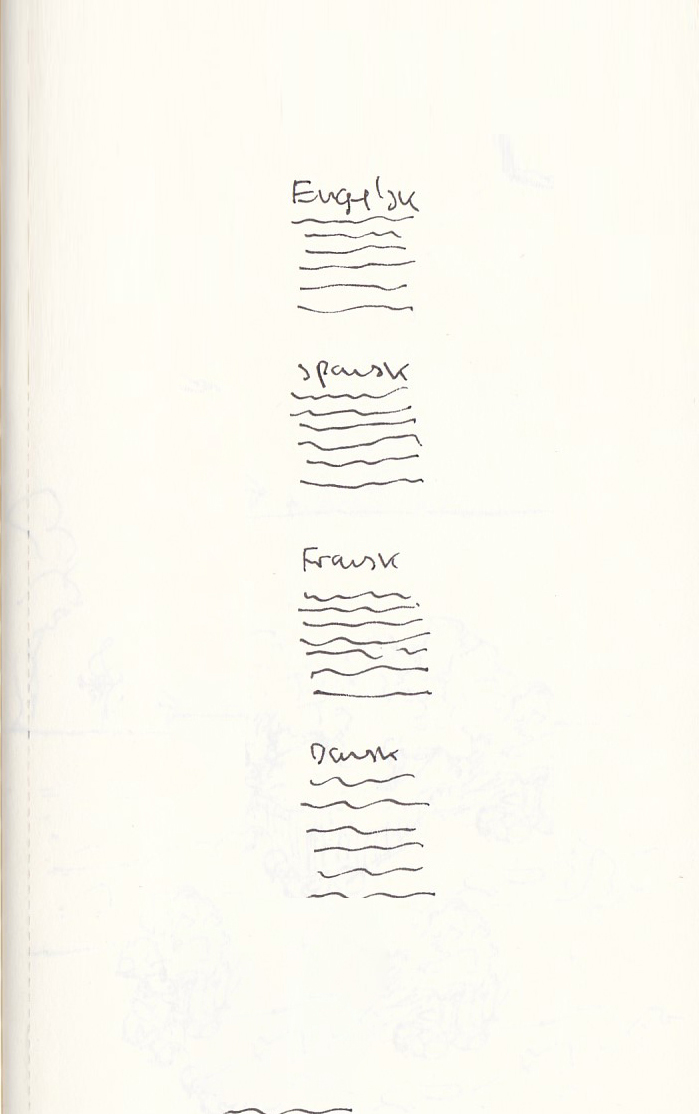 Engelsk
Spansk
Fransk
Dansk